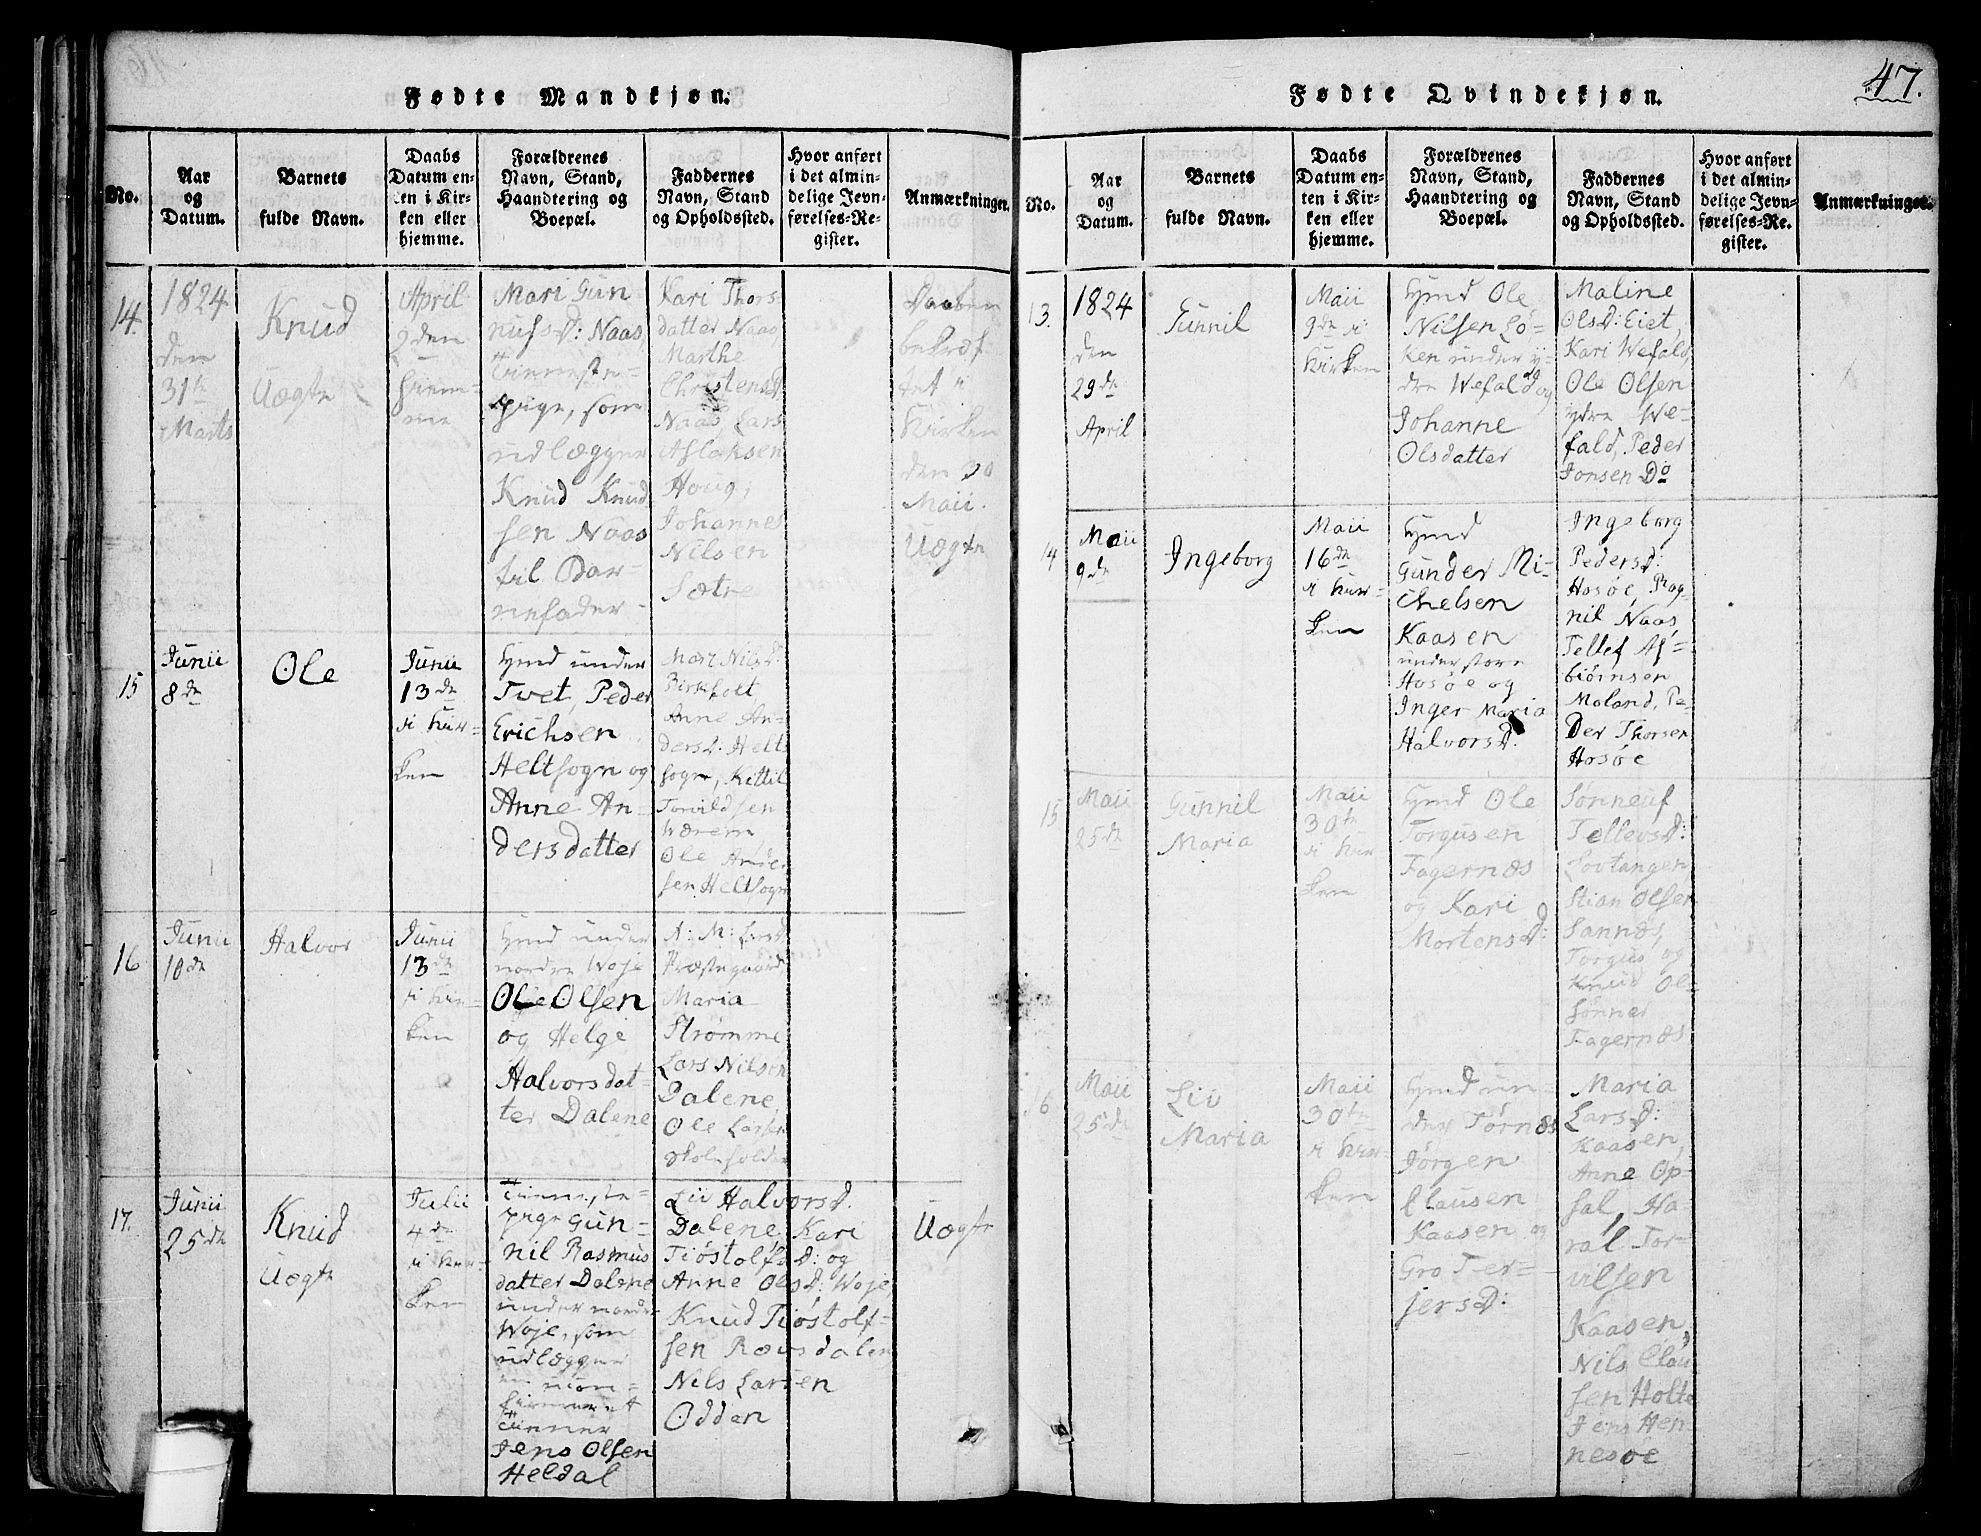 Fødte Mandkjøn.
No.
Aar
og
Datum.
Barnets
fulde Navn.
Daabs
Datum en-
ten i Kir-
ken eller
hjemme.
Forældrenes
Navn, Stand,
Haandtering og
Boepæl.
Faddernes
Navn, Stand
og Opholdssted.
Hvor anført
i det almin-
delige Jevn-
førelses-Re-
gister.
Anmærkninger.
14.
1824
den
31te
Marts
Knud
Uægte
April
2den
hiem-
me
Mari Gun-
nufsD: Naas,
Tieneste-
pige, som
udlægger
Knud Knud
sen Naas
til Bar-
nefader-
Kari Thors
datter Naas,
Marthe
ChristensD
Naas, Lars
Aslaksen
Houg,
Johannes
Nilsen
Sætre
Daaben
bekræf-
tet i
Kirken
den 30
Maii.
Uægte
15
Junii
8de
Ole
Junii
13de
i Kir-
ken
Hmd under
Tvet, Peder
Erichsen
Heltsogn og
Anne An-
dersdatter
Mari NilsD:
Birkholt
Anne An-
dersD: Helt
sogn, Kittil
Torvildsen
Værem
Ole Ander
sen Heltsogn
16
Junii
10de
Halvor
Junii
13de
i Kir-
ken
Hmd under
nordre Woje
Ole Olsen
og Helge
Halvorsdat-
ter Dalene
A: M: LarsD
Præstegaard
Maria
Strømme
Lars Nilsen
Dalene
Ole Larsen
Skoleholder
17.
Junii
25de
Knud
Uægte
Julii
4de
i Kir-
ken
Tieneste-
pige Gun-
nil Rasmus
datter Dalene
under nordre
Woje, som
udlægger
en ucon-
firmeret
Tienner
Jens Olsen
Heldal
Liv HalvorsD.
Dalene, Kari
TiøstolfsD: og
Anne OlsD: Woje
Knud Tiøstolf-
sen Ravnsdalen
Nils Larsen
Odden
Uægte
47.
Fødte Qvindekjøn.
No.
Aar
og
Datum.
Barnets
fulde Navn.
Daabs
Datum en-
ten i Kir-
ken eller
hjemme.
Forældrenes
Navn, Stand,
Haandtering og
Boepæl.
Faddernes
Navn, Stand
og Opholdssted.
Hvor anført
i det almin-
delige Jevn-
førelses-Re-
gister.
Anmærkninger.
13.
1824
den
29de
April
Gunnil
Maii
9de i
Kirken
Hmd Ole
Nilsen Lø-
ken under y-
dre Wefald og
Johanne
Olsdatter
Maline
OlsD: Eiet,
Kari Wefald,
Ole Olsen
ydre We-
fald, Peder
Jonsen Do
14
Maii
9de
Ingeborg
Maii
16de
i Kir-
ken
Hmd
Gunder Mi-
chelsen
Kaasen
under store
Hosøe og
Inger Maria
HalvorsD:
Ingeborg
PedersD:
Hosøe, Rag-
nil Naas
Tellef As-
biørnsen
Moland, Pe-
der Thorsen
Hosøe
15
Maii
25de
Gunnil
Maria
Maii
30te
i Kir-
ken
Hmd Ole
Torgusen
Fagernæs
og Kari
MortensD:
Sønneuf
TellevsD:
Lovtangen
Stian Olsen
Sannæs,
Torgus og
Knud Ol-
sønner
Fagernæs
16
Maii
25de
Liv
Maria
Maii
30te
i Kir-
ken
Hmd un-
der Tørnes
Jørgen
Clausen
Kaasen og
Gro Ter-
jersD:
Maria
LarsD:
Kaasen,
Anne Op-
sal, Ha-
ral Tor-
vilsen
Kaasen,
Nils Clau
sen Holte
Jens Hen
nesøe